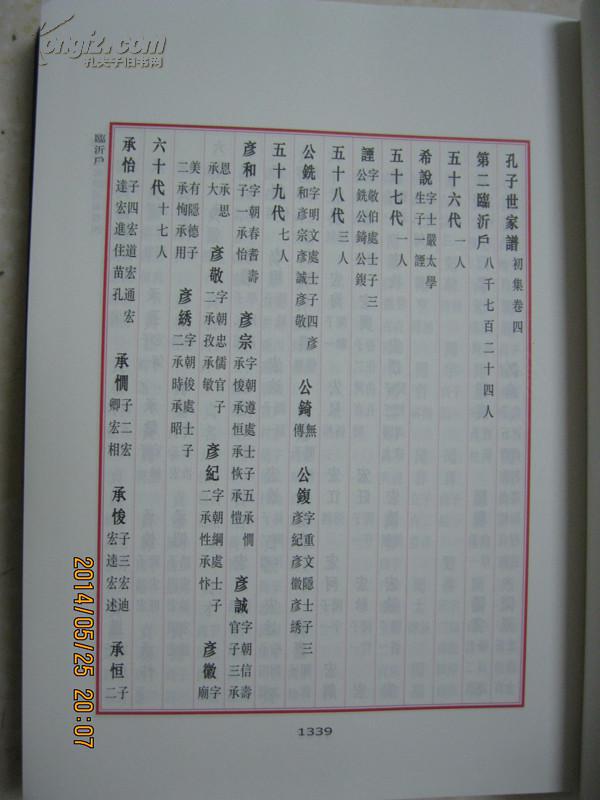 孔子世家譜 初集卷四
第二臨沂戶 八千七百二十四人
五十六代 一人
希說 字士嚴太學生子一諲
五十七代 一人
諲 字敬伯處士子三公銑公錡公鍑
五十八代 三人
公銑 字明文處士子四彥和彥宗彥誠彥敬 公錡 無傳 公鍑 字重文隱士子三彥紀彥徽彥綉
五十九代 七人
彥和 字朝春耆壽子一承怡 彥宗 字朝遵處士子五承憪承悛承恒承恢承愷 彥誠 字朝信壽官子三承
恩承思承大 彥敬 字朝忠儒官子二承孜承敏 彥紀 字朝綱處士子二承性承忭 彥徽 字廟
美有隱德子二承恂承用 彥綉 字朝俊處士子二承時承昭
六十代 十七人
承怡 子四宏道宏通宏達宏進住苗孔 承憪 子二宏卿宏相 承悛 子三宏迪宏逵宏述 承恒 子二
臨沂戶
1339
kongfz.com
孔夫子旧书网
2014/05/25 20:07